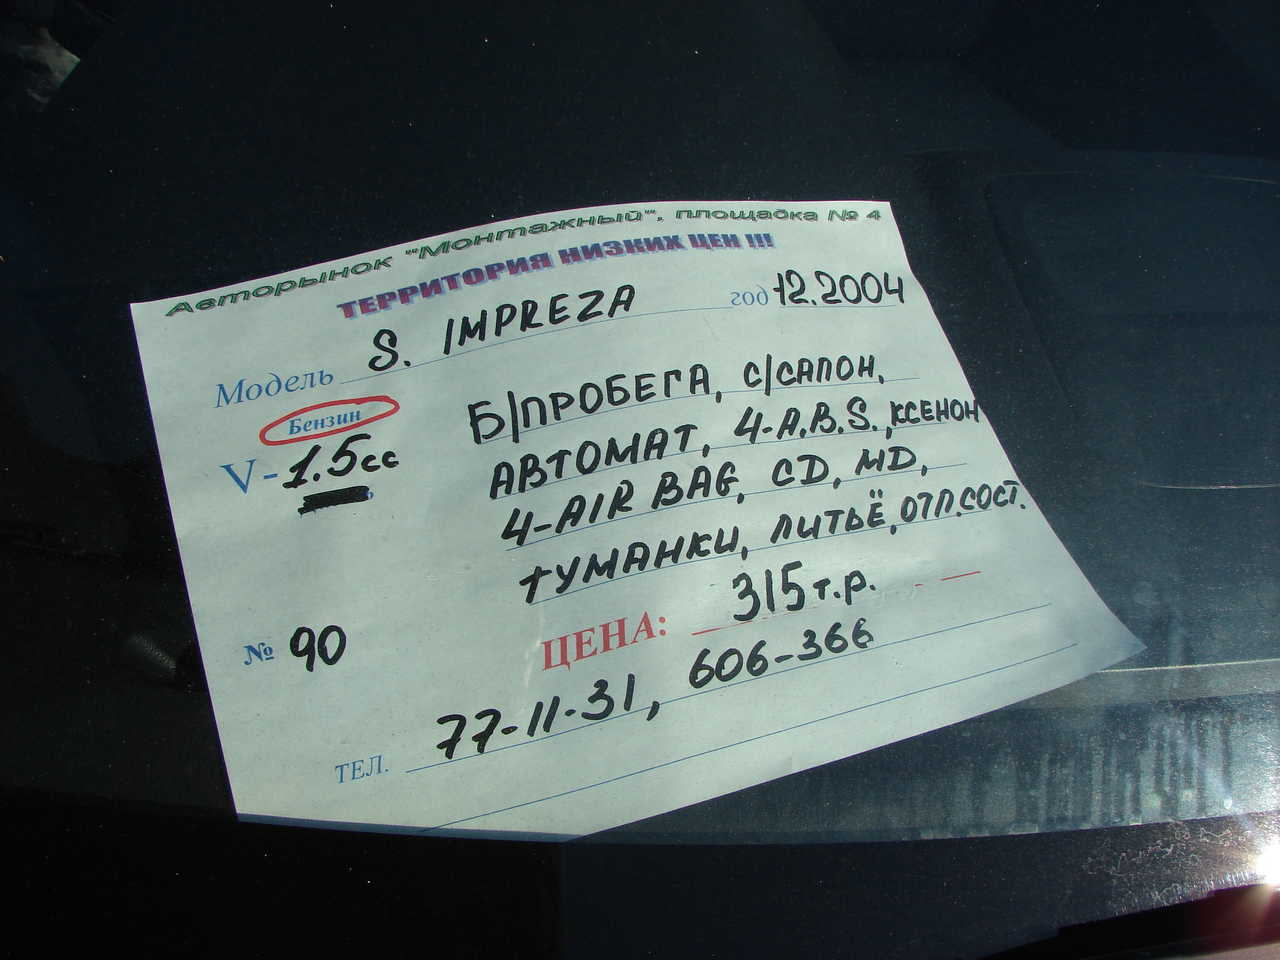 Авторынок ""Монтажный"", площадка № 4
ТЕРРИТОРИЯ НИЗКИХ ЦЕН !!!
Модель S. IMPREZA год 12.2004
Бензин
V- 1.5 cc
Б/ПРОБЕГА, С/САЛОН,
АВТОМАТ, 4-A.B.S., КСЕНОН
4-AIR BAG, CD, MD,
ТУМАНКИ, ЛИТЬЁ, ОТЛ. СОСТ.
№ 90
ЦЕНА: 315 т.р.
ТЕЛ. 77-11-31, 606-366